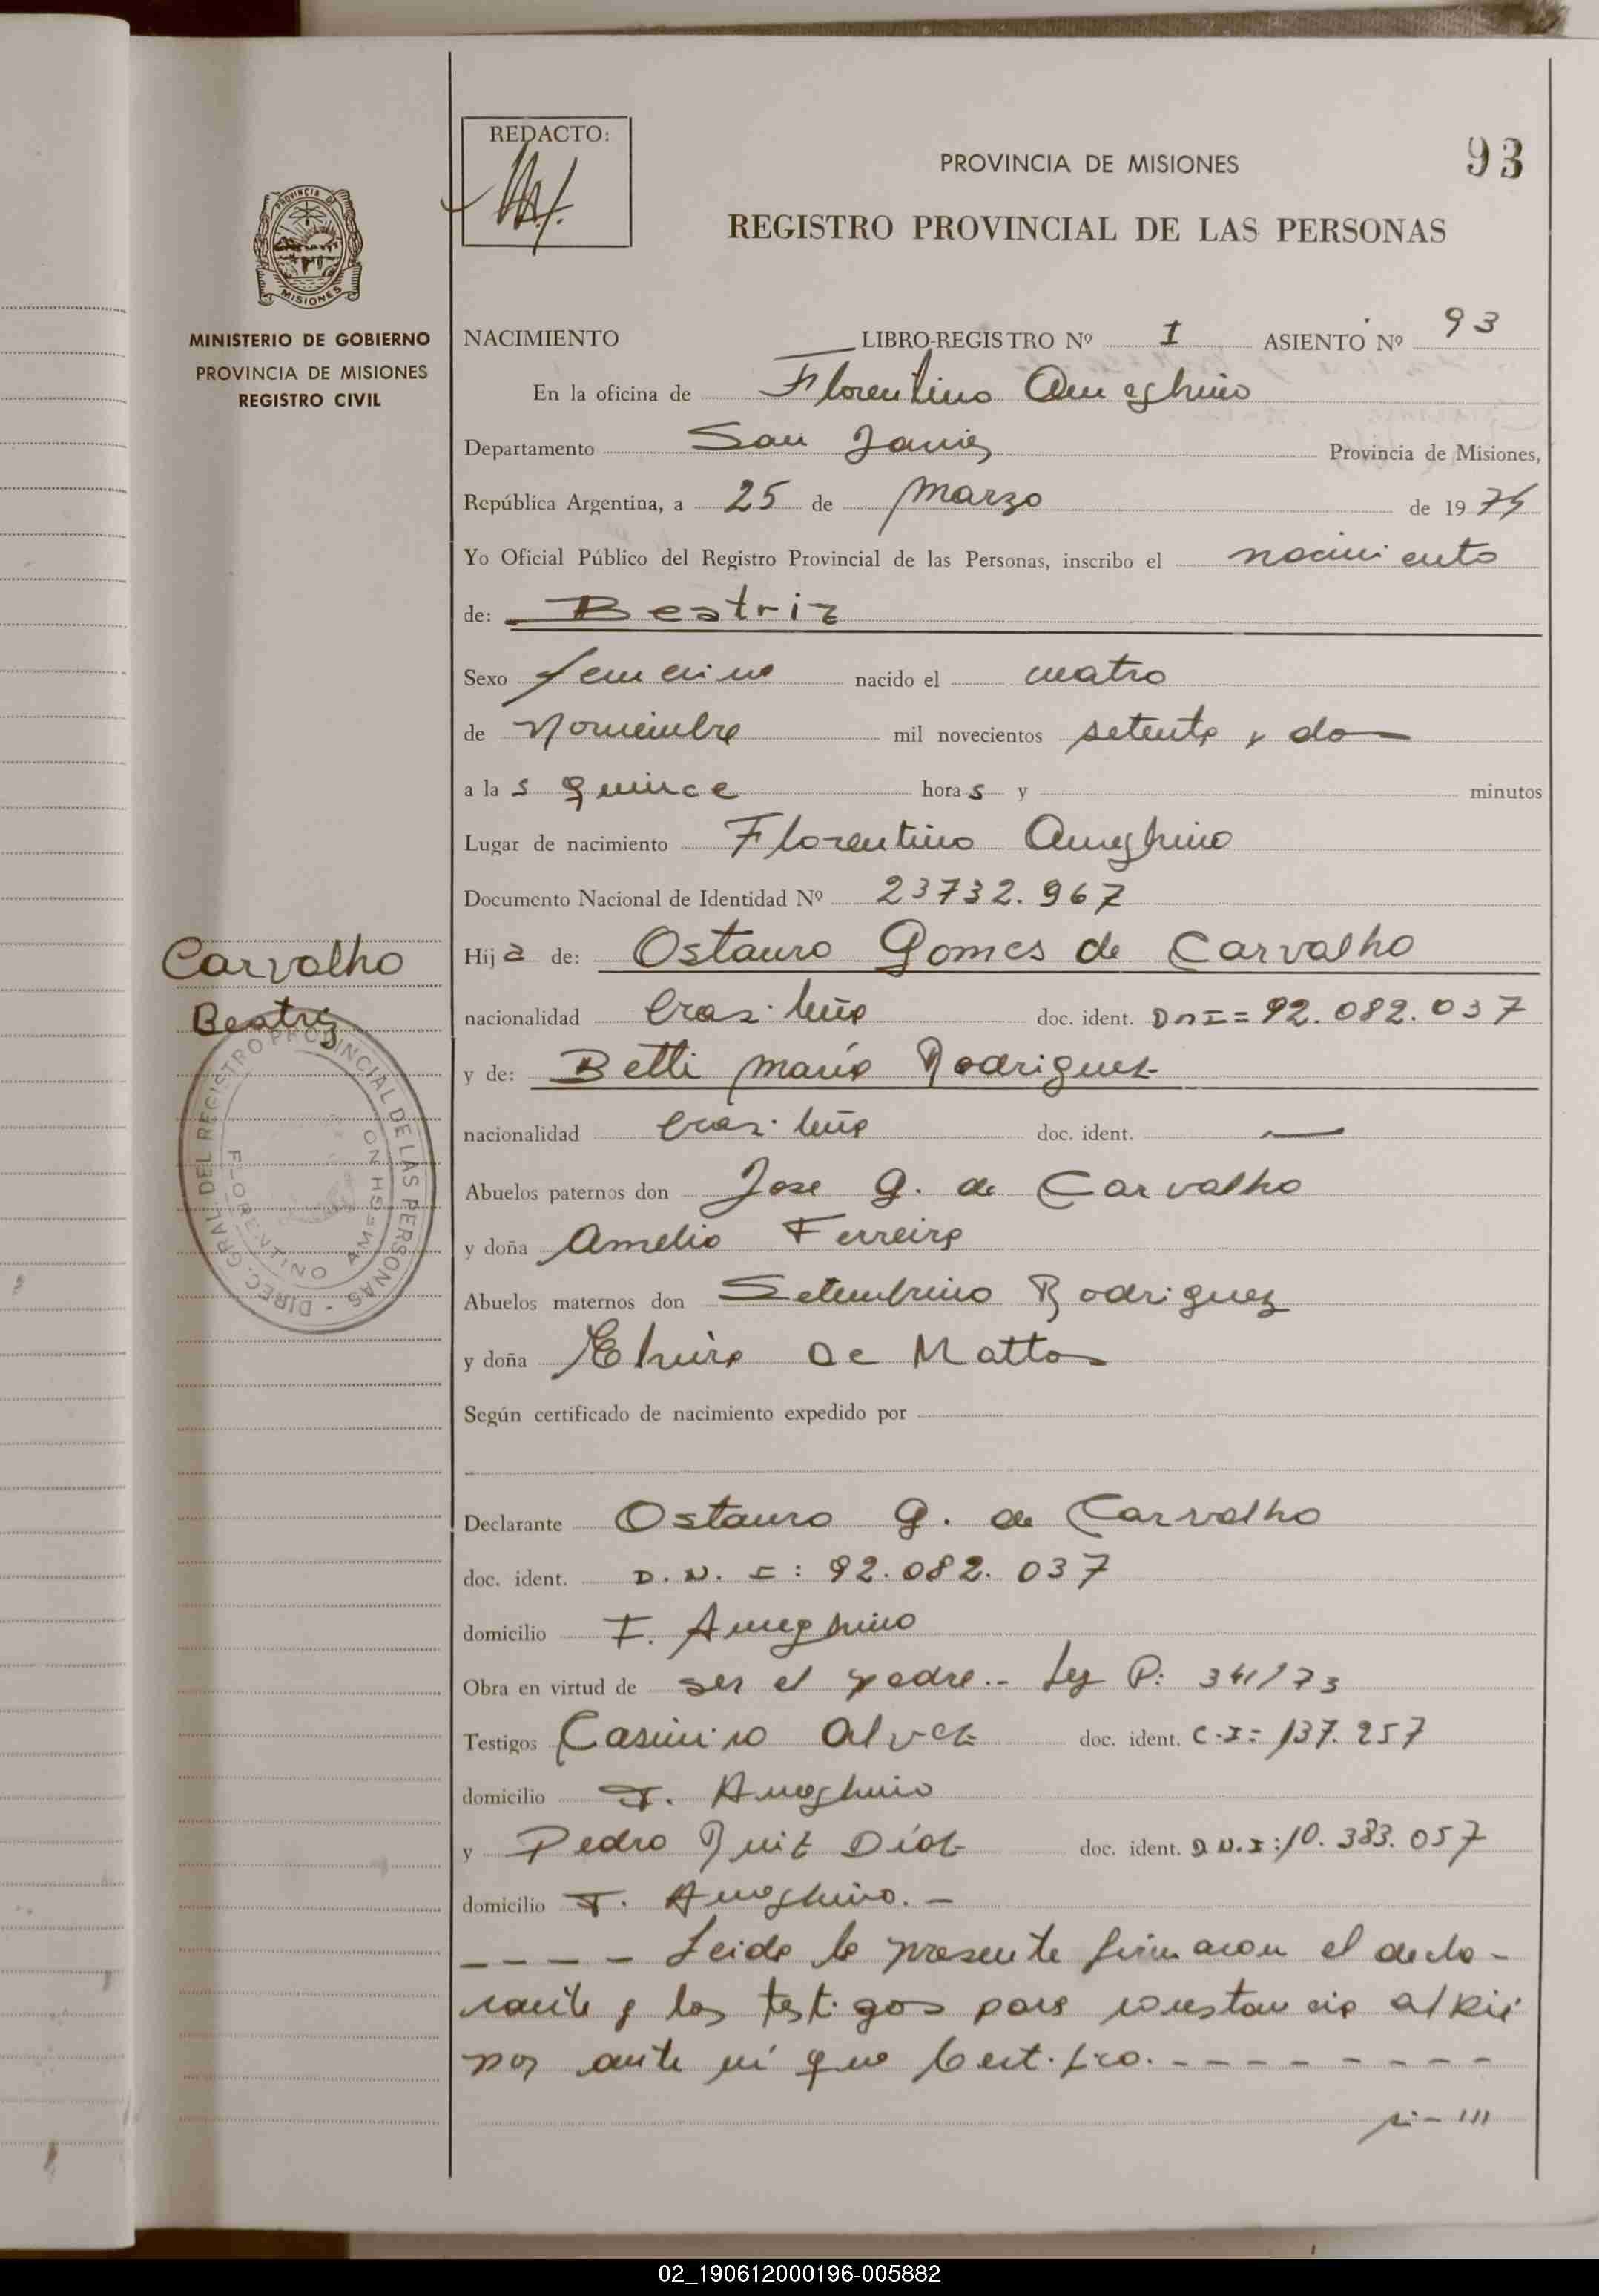 REDACTO:
PROVINCIA DE MISIONES
93
REGISTRO PROVINCIAL DE LAS PERSONAS
PROVINCIA DE
MISIONES
MINISTERIO DE GOBIERNO
PROVINCIA DE MISIONES
REGISTRO CIVIL
NACIMIENTO LIBRO-REGISTRO Nº 1 ASIENTO Nº 93
En la oficina de Florentino Ameghino
Departamento San Javier Provincia de Misiones,
República Argentina, a 25 de Marzo de 1974
Yo Oficial Público del Registro Provincial de las Personas, inscribo el nacimiento
de: Beatriz
Sexo femenino nacido el cuatro
de Noviembre mil novecientos setenta y dos
a las quince horas y minutos
Lugar de nacimiento Florentino Ameghino
Documento Nacional de Identidad Nº 23732.967
Hija de: Ostauro Gomes de Carvalho
nacionalidad brasileña doc. ident. DNI= 92.082.037
y de: Belli María Rodriguez
nacionalidad brasileña doc. ident. —
Abuelos paternos don Jose G. de Carvalho
y doña Amelia Ferreira
Abuelos maternos don Setembrino Rodriguez
y doña Elvira De Mattos
Según certificado de nacimiento expedido por
Declarante Ostauro G. de Carvalho
doc. ident. D.N.I: 92.082.037
domicilio F. Ameghino
Obra en virtud de ser el padre.- Ley P: 341/73
Testigos Casimiro Alvez doc. ident. C.I= 137.257
domicilio F. Ameghino
y Pedro Ruiz Díaz doc. ident. D.N.I: 10.383.057
domicilio F. Ameghino.-
---- Leida la presente firmaron el decla-
rante y los testigos para constancia
por ante mí que Certifico.---------
Carvalho
Beatriz
DIREC. GRAL. DEL REGISTRO PROVINCIAL DE LAS PERSONAS
FLORENTINO AMEGHINO
02_190612000196-005882